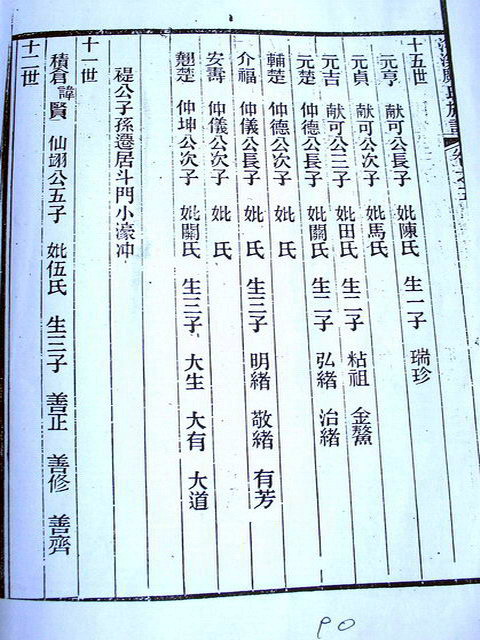 十五世
元亨 献可公長子 妣陳氏 生一子 瑞珍
元貞 献可公次子 妣馬氏
元吉 献可公三子 妣田氏 生二子 粘祖 金鰲
元楚 仲德公長子 妣關氏 生二子 弘緒 治緒
輔楚 仲德公次子 妣 氏
介福 仲儀公長子 妣 氏 生三子 明緒 敬緒 有芳
安壽 仲儀公次子 妣 氏
翹楚 仲坤公次子 妣關氏 生三子 大生 大有 大道
禔公子孫遷居斗門小濠冲
十一世
積倉諱賢 仙翊公五子 妣伍氏 生三子 善正 善修 善齊
十二世
PO